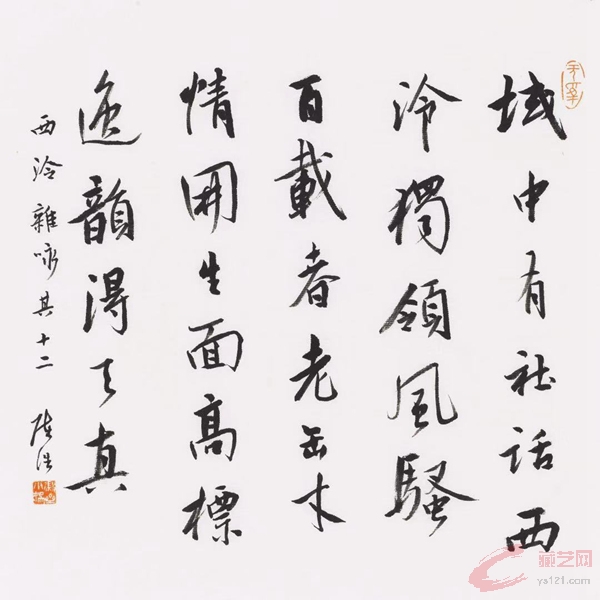 域中有社話西
泠獨領風騷
百載春老缶才
情開生面高標
逸韻得天真
西泠雜咏其十二
藏艺网
ys121.com